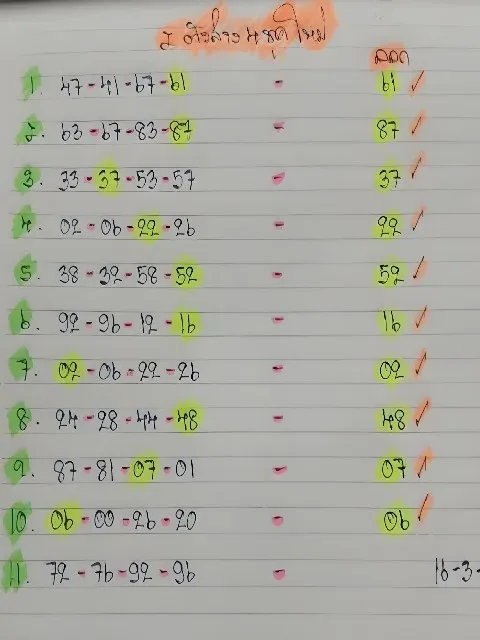 2 ตัวล่าง 4 ชุด ใหม่
ออก
1. 47-41-67-61 - 61 ✓
2. 63-67-83-87 - 87 ✓
3. 33-37-53-57 - 37 ✓
4. 02-06-22-26 - 22 ✓
5. 38-32-58-52 - 52 ✓
6. 92-96-12-16 - 16 ✓
7. 02-06-22-26 - 02 ✓
8. 24-28-44-48 - 48 ✓
9. 87-81-07-01 - 07 ✓
10. 06-00-26-20 - 06 ✓
11. 72-76-92-96 - 16-3-